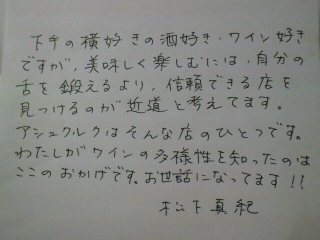 下手の横好きの酒好き・ワイン好き
ですが、美味しく楽しむには、自分の
舌を鍛えるより、信頼できる店を
見つけるのが近道と考えてます。
アシュクルクはそんな店のひとつです。
わたしがワインの多様性を知ったのは
ここのおかげです。お世話になってます!!
松下真紀